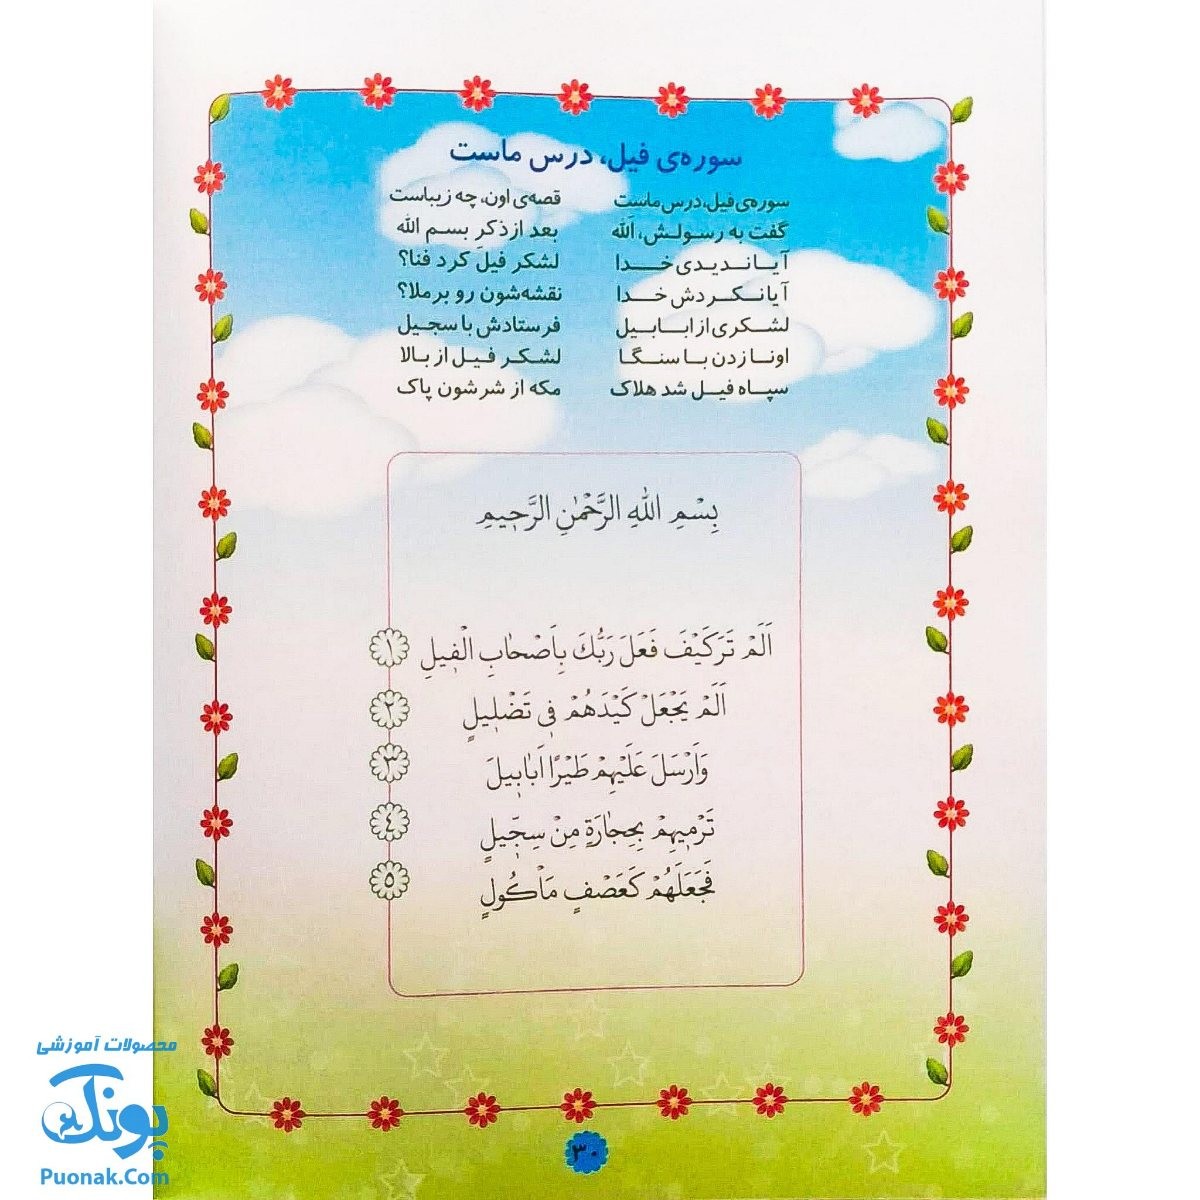 سوره‌ی فیل، درس ماست
سوره‌ی فیل، درس ماست قصه‌ی اون، چه زیباست
گفت به رسولش، الله بعد از ذکر بسم الله
آیا ندیدی خدا لشکر فیل کرد فنا؟
آیا نکردش خدا نقشه‌شون رو برملا؟
لشکری از ابابیل فرستادش با سجیل
اونا زدن با سنگا لشکر فیل از بالا
سپاه فیل شد هلاک مکه از شرشون پاک
بِسْمِ اللّٰهِ الرَّحْمٰنِ الرَّحیمِ
اَلَمْ تَرَ كَیْفَ فَعَلَ رَبُّكَ بِاَصْحٰابِ الْفیلِ ١
اَلَمْ یَجْعَلْ كَیْدَهُمْ فی تَضْلیلٍ ٢
وَ اَرْسَلَ عَلَیْهِمْ طَیْرًا اَبٰابیلَ ٣
تَرْمیهِمْ بِحِجٰارَةٍ مِنْ سِجّیلٍ ٤
فَجَعَلَهُمْ كَعَصْفٍ مَأْكُولٍ ٥
٣٠
محصولات آموزشی
پونک
Puonak.Com